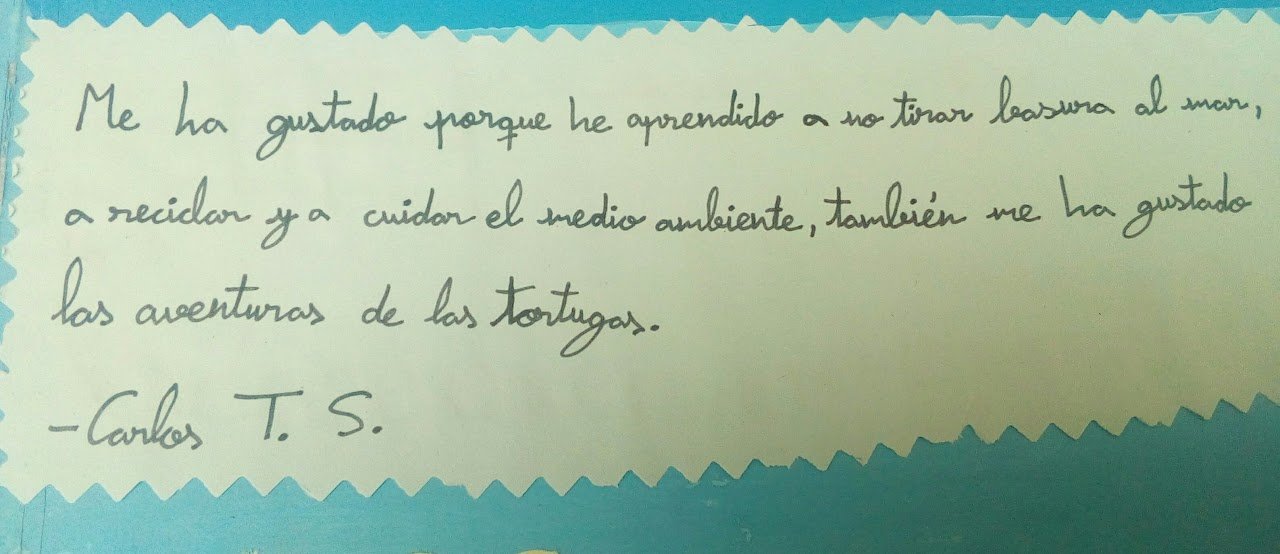 Me ha gustado porque he aprendido a no tirar basura al mar,
a reciclar y a cuidar el medio ambiente, también me ha gustado
las aventuras de las tortugas.
-Carlos T. S.